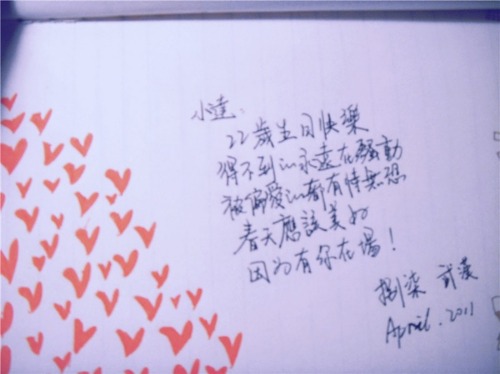 小達:
22歲生日快樂
得不到的永遠在騷動
被偏愛的都有恃無恐
春天應該美好
因为有你在場!
捌柒 武漢
April. 2011